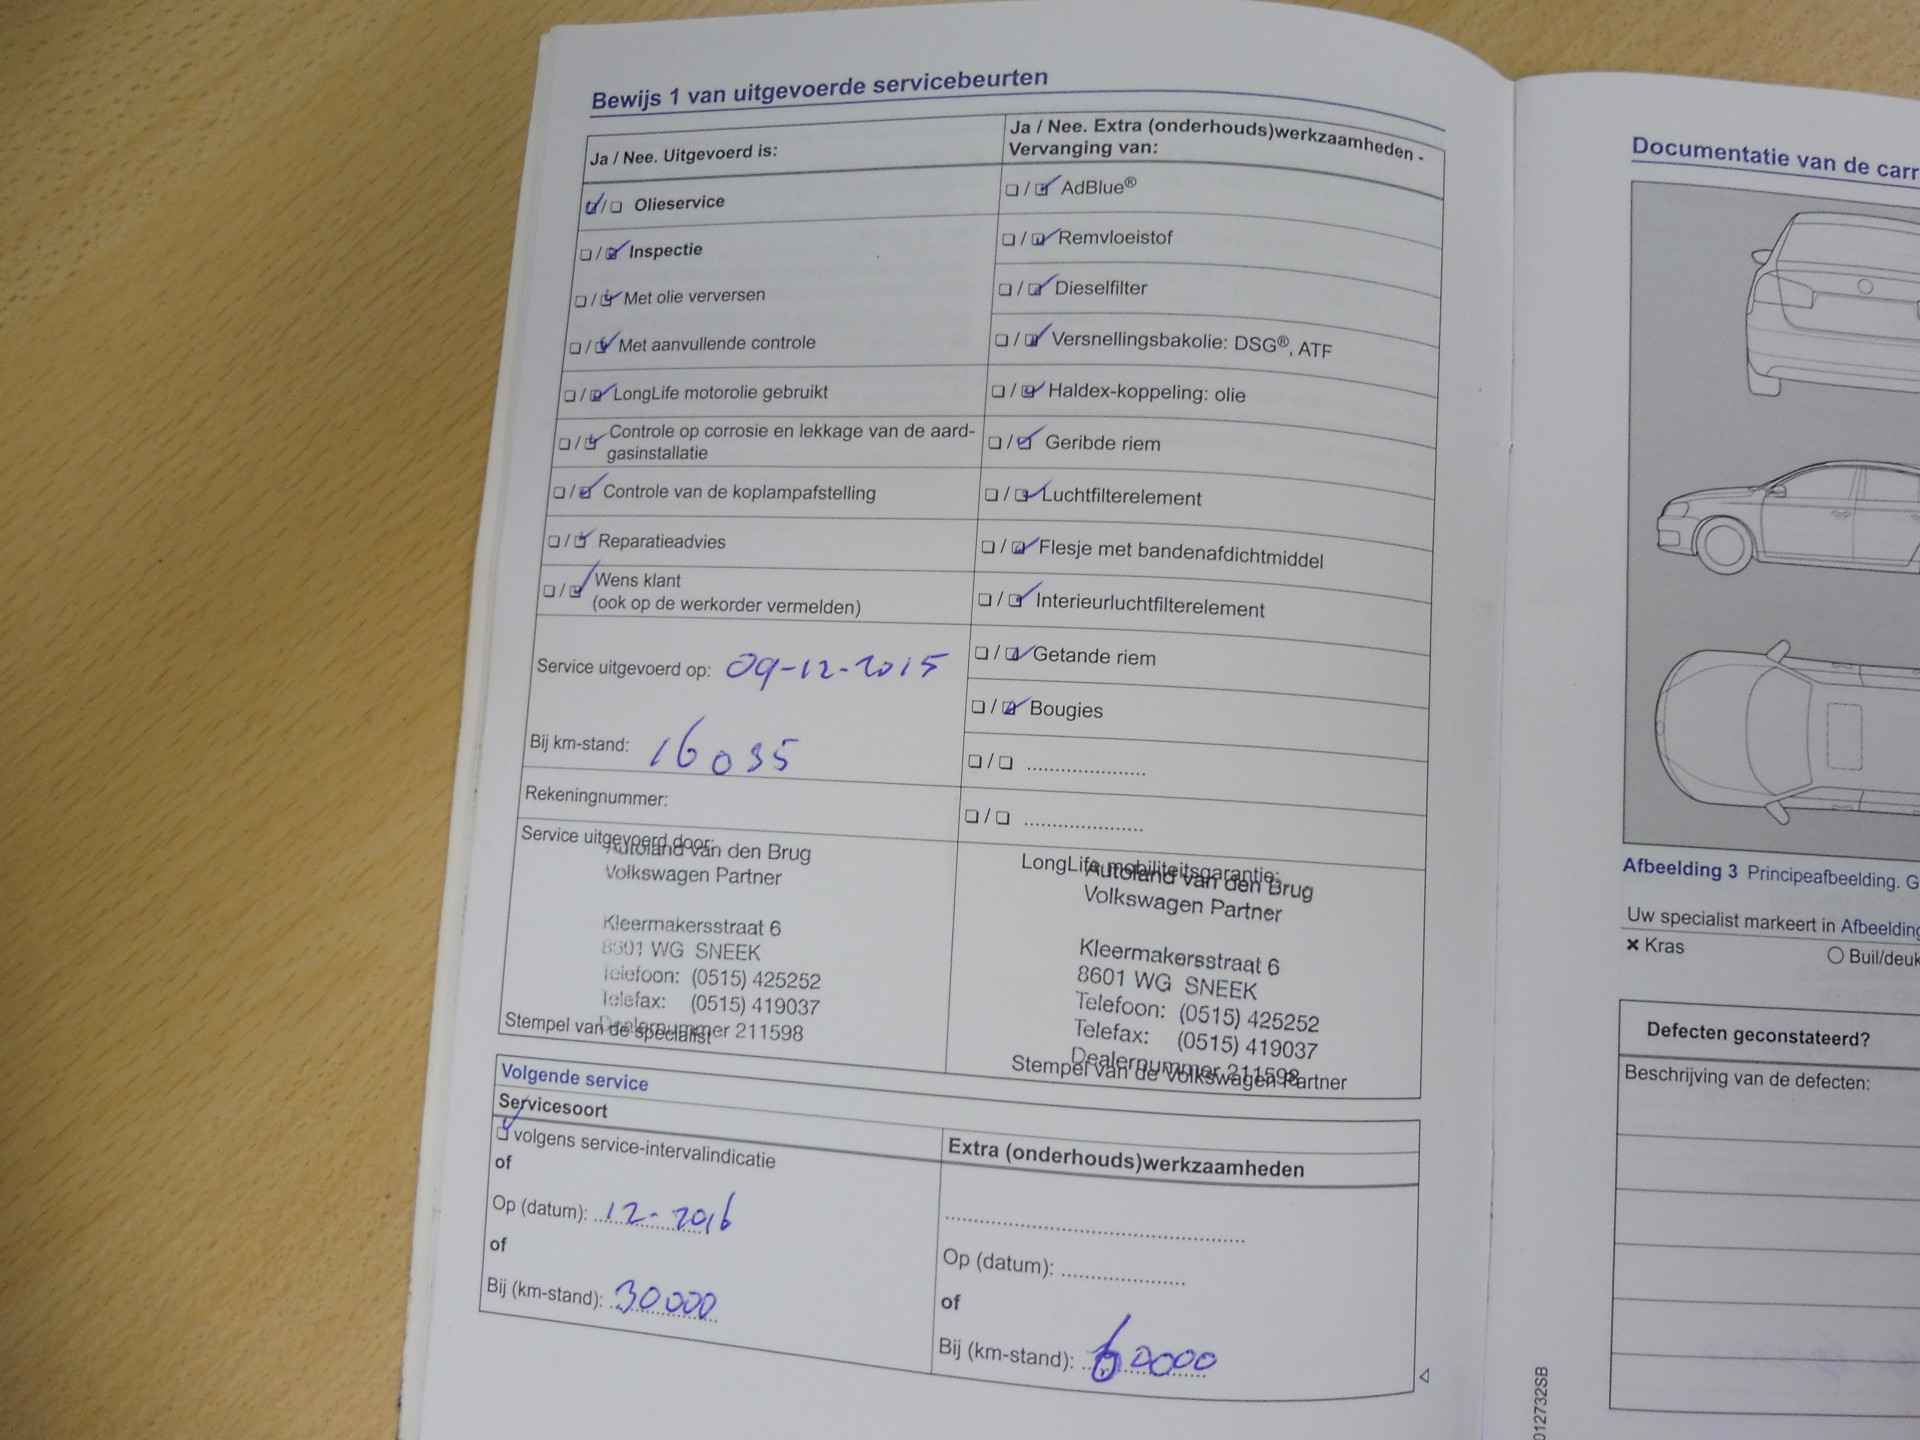 Bewijs 1 van uitgevoerde servicebeurten
Ja / Nee. Uitgevoerd is:
Olieservice
Inspectie
Met olie verversen
Met aanvullende controle
LongLife motorolie gebruikt
Controle op corrosie en lekkage van de aard-
gasinstallatie
Controle van de koplampafstelling
Reparatieadvies
Wens klant
(ook op de werkorder vermelden)
Service uitgevoerd op: 09-12-2015
Bij km-stand: 16035
Rekeningnummer:
Service uitgevoerd door:
Autoland van den Brug
Volkswagen Partner
Kleermakersstraat 6
8601 WG SNEEK
Telefoon: (0515) 425252
Telefax: (0515) 419037
Dealernummer 211598
Stempel van de specialist
Ja / Nee. Extra (onderhouds)werkzaamheden -
Vervanging van:
AdBlue®
Remvloeistof
Dieselfilter
Versnellingsbakolie: DSG®, ATF
Haldex-koppeling: olie
Geribde riem
Luchtfilterelement
Flesje met bandenafdichtmiddel
Interieurluchtfilterelement
Getande riem
Bougies
/ ....................
/ ....................
LongLife mobiliteitsgarantie:
Autoland van den Brug
Volkswagen Partner
Kleermakersstraat 6
8601 WG SNEEK
Telefoon: (0515) 425252
Telefax: (0515) 419037
Dealernummer 211598
Stempel van de Volkswagen Partner
Volgende service
Servicesoort
volgens service-intervalindicatie
of
Op (datum): 12-2016
of
Bij (km-stand): 30000
Extra (onderhouds)werkzaamheden
Op (datum):
of
Bij (km-stand): 60000
012732SB
Documentatie van de carr
Afbeelding 3 Principeafbeelding. G
Uw specialist markeert in Afbeelding
Kras
Buil/deuk
Defecten geconstateerd?
Beschrijving van de defecten: